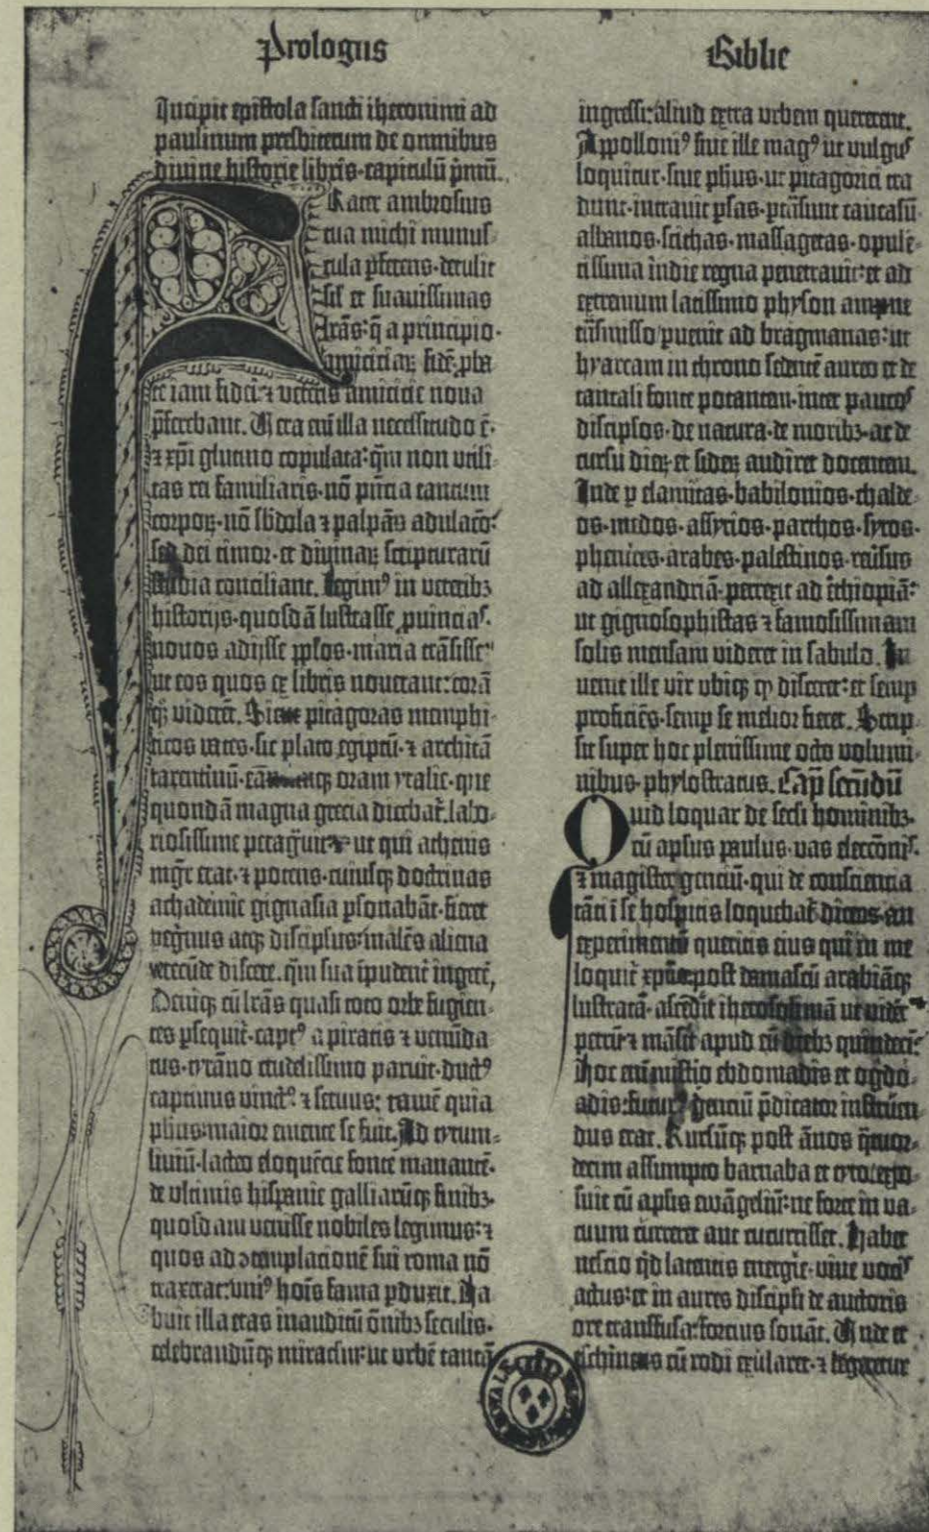 Prologus
Incipit epistola sancti iheronimi ad
paulinum presbiterum de omnibus
diuine historie libris. capitulū pmū.
Frater ambrosius
tua michi munus-
cula pferens. detulit
sīl et suauissimas
lrās: q̄ a principio
amiciciaꝝ fidē. pba-
te iam fidei: ⁊ veteris amicicie noua
pferebant. Uera eni illa necessitudo ē.
⁊ xpi glutino copulata: qm non vtili-
tas rei familiaris. nō pn̄cia tantum
corporꝝ. nō sbdola ⁊ palpās adulacō:
sed dei timor. et diuinaꝝ scripturarū
studia conciliant. Legimꝰ in veteribꝫ
historijs. quosdā lustrasse puincias.
nouos adijsse pplos. maria trāsisse
ut eos quos ex libris nouerant: corā
qꝫ viderēt. Sicut pitagoras memphi-
ticos vates. sic plato egiptū. ⁊ architā
tarentinū. eāmqꝫ oram ytalie. que
quondā magna grecia dicebat̄. labo-
riosissime peragrauit ut qui athenis
mgr̄ erat. ⁊ potens. cuiusqꝫ doctrinas
achademie gignasia psonabāt. fieret
pegrinus atqꝫ discipulus: malēs aliena
verecūde discere. qm sua īpudent̄ ingere,
Deniqꝫ cū lrās quasi toto orbe fugien-
tes psequit̄. captꝰ a piratis ⁊ venūda-
tus. tyrāno crudelissimo paruit. ductꝰ
captiuus vinctꝰ ⁊ seruus: tamē quia
phus. maior emente se fuit. Ad tytum-
liuiū. lacteo eloquēcie fonte manantē.
de vltimis hispanie galliarūqꝫ finibꝫ.
quosdam venisse nobiles legimus: ⁊
quos ad ꝯtemplacionē sui roma nō
traxerat: vniꝰ hoīs fama pduxit. Ha-
buit illa etas inauditū ōnibꝫ seculis.
celebrandūqꝫ miraclm: ut vrbē tantā
Biblie
ingressi: aliud extra vrbem quererent.
Appollonīꝰ siue ille magꝰ ut vulgus
loquitur. siue phus. ut pitagorici tra-
dunt. intrauit psas. ptrāsiuit caucasū
albanos. scithas. massagetas. opulē-
tissima indie regna penetrauit: et ad
extremum latissimo physon ampne
trāsmisso puenit ad bragmanas: ut
hyarcam in throno sedentē aureo et de
tantali fonte potantem. inter paucos
disciplos. de natura. de moribꝫ. ac de
cursu dierꝝ et siderꝝ audiret docentem.
Inde p elamitas. babilonios. chalde-
os. medos. assyrios. parthos. syros.
phenices. arabes. palestinos. reūsus
ad allexandriā. perrexit ad ethiopiā:
ut gignosophistas ⁊ famosissimam
solis mensam videret in sabulo. In-
uenit ille vir vbiqꝫ qd disceret: et semp
proficiēs. semp se melior fieret. Scrip-
sit super hoc plenissime octo volumi-
nibus. phylostratus. Cap̄ secūdū
Quid loquar de secli hominibꝫ.
cū apsus paulus. vas electōnis.
⁊ magister genciū. qui de consciencia
tāti ī se hospitis loquebat̄ dicens. an
experimentū queritis eius qui in me
loquit̄ xpus post damascū arabiāqꝫ
lustratā. ascēdit iherosolimā ut videt̄
petrū ⁊ māsit apud eū diebꝫ quindeci
Hoc eni mistio ebdomadis et ogdo-
adis: futurꝰ genciū pdicator instruen-
dus erat. Rursūqꝫ post ānos q̄tuor-
decim assumpto barnaba et tyto: expo-
suit cū apsis ewāgeliū: ne forte in va-
cuum curreret aut cucurrisset. Habet
nescio qd latentis energie. viue vocis
actus: et in aures discipli de auctoris
ore transfusa: forcius sonāt. Unde et
eschines cū rodi exularet. ⁊ legeretur